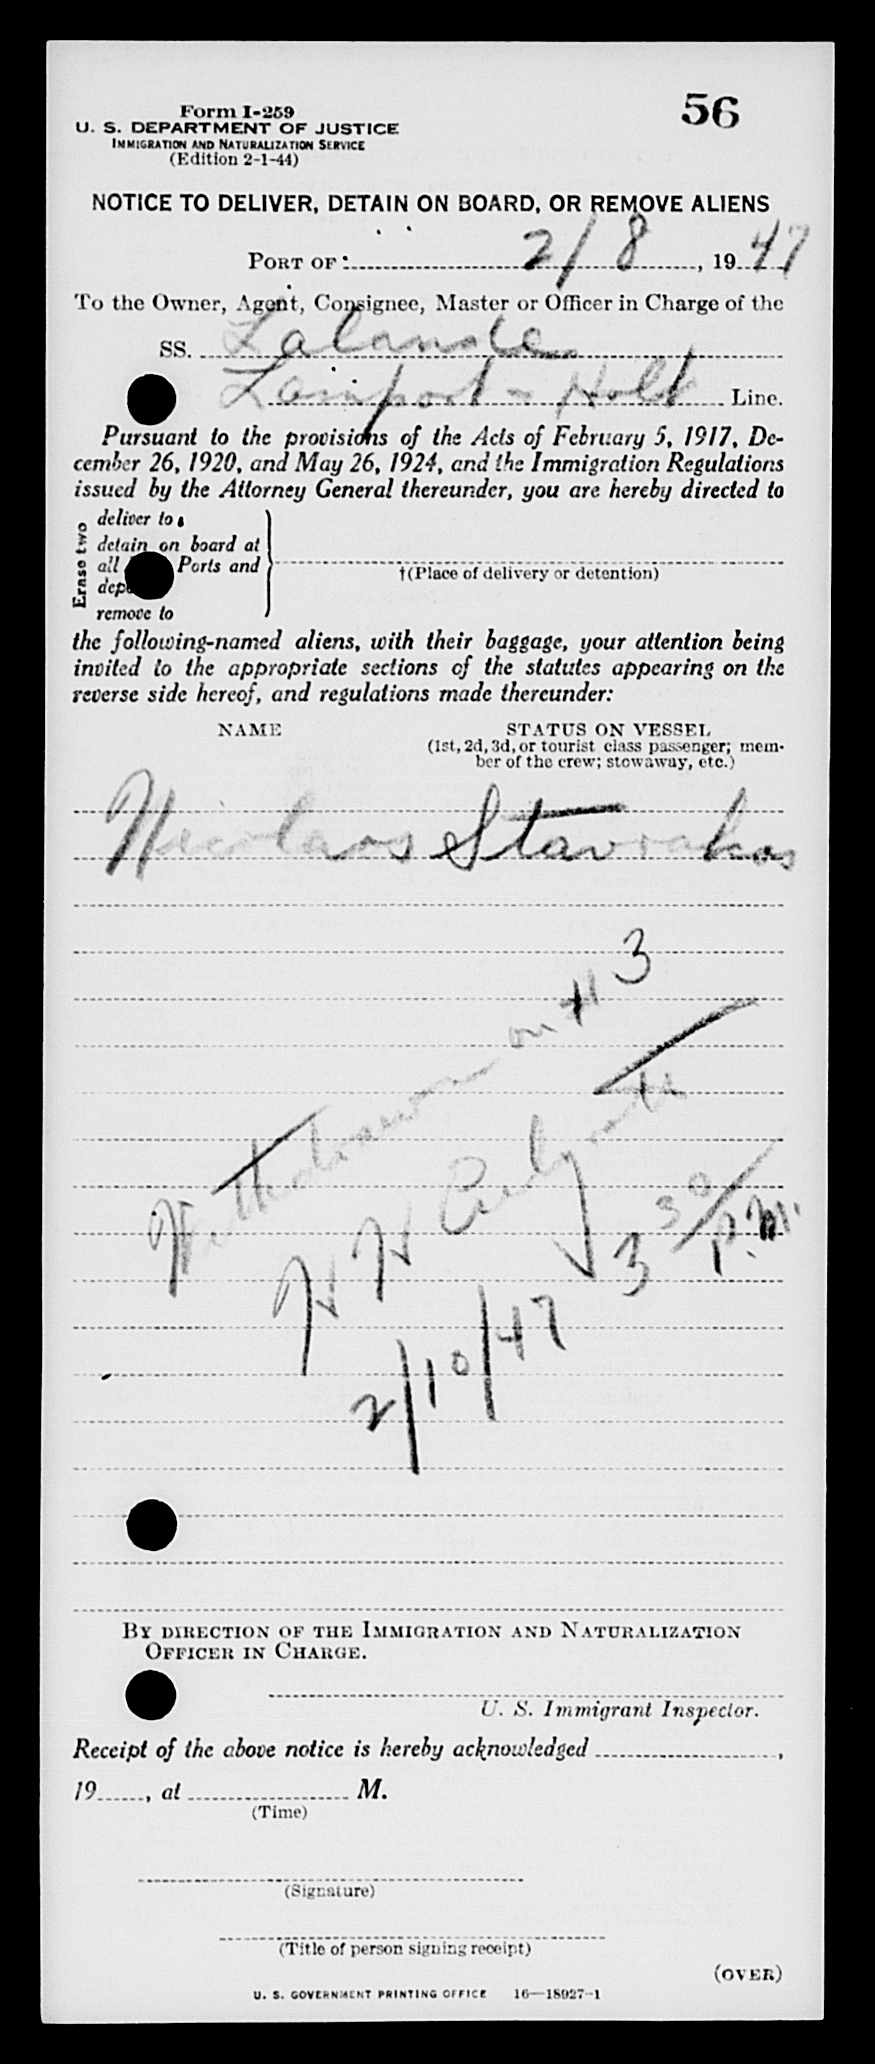 Form I-259
56
U. S. DEPARTMENT OF JUSTICE
IMMIGRATION AND NATURALIZATION SERVICE
(Edition 2-1-44)
NOTICE TO DELIVER, DETAIN ON BOARD, OR REMOVE ALIENS
PORT OF 2/8, 1947
To the Owner, Agent, Consignee, Master or Officer in Charge of the
SS. Lalande
Lamport - Holt Line.
Pursuant to the provisions of the Acts of February 5, 1917, De-
cember 26, 1920, and May 26, 1924, and the Immigration Regulations
issued by the Attorney General thereunder, you are hereby directed to
Erase two
deliver to
detain on board at
all Ports and
remove to
†(Place of delivery or detention)
the following-named aliens, with their baggage, your attention being
invited to the appropriate sections of the statutes appearing on the
reverse side hereof, and regulations made thereunder:
NAME STATUS ON VESSEL
(1st, 2d, 3d, or tourist class passenger; mem-
ber of the crew; stowaway, etc.)
Nicolaos Stavrakas
Withdrawn on #3
H H
3 30/P.M.
2/10/47
BY DIRECTION OF THE IMMIGRATION AND NATURALIZATION
OFFICER IN CHARGE.
U. S. Immigrant Inspector.
Receipt of the above notice is hereby acknowledged ,
19 , at M.
(Time)
(Signature)
(Title of person signing receipt)
(OVER)
U. S. GOVERNMENT PRINTING OFFICE 16—18927-1